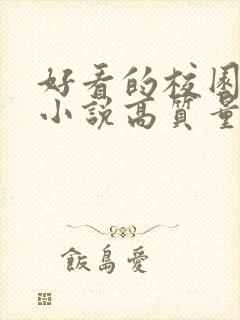 好看的校园
小說高質量
飯島愛